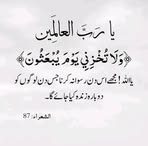 يا رَبَّ العالمين
﴿وَلَا تُخْزِنِي يَوْمَ يُبْعَثُونَ﴾
یااللہ! مجھے اس دن رسوا نہ کرنا جس دن لوگوں کو
دوبارہ زندہ کیا جائے گا۔
الشعراء: 87